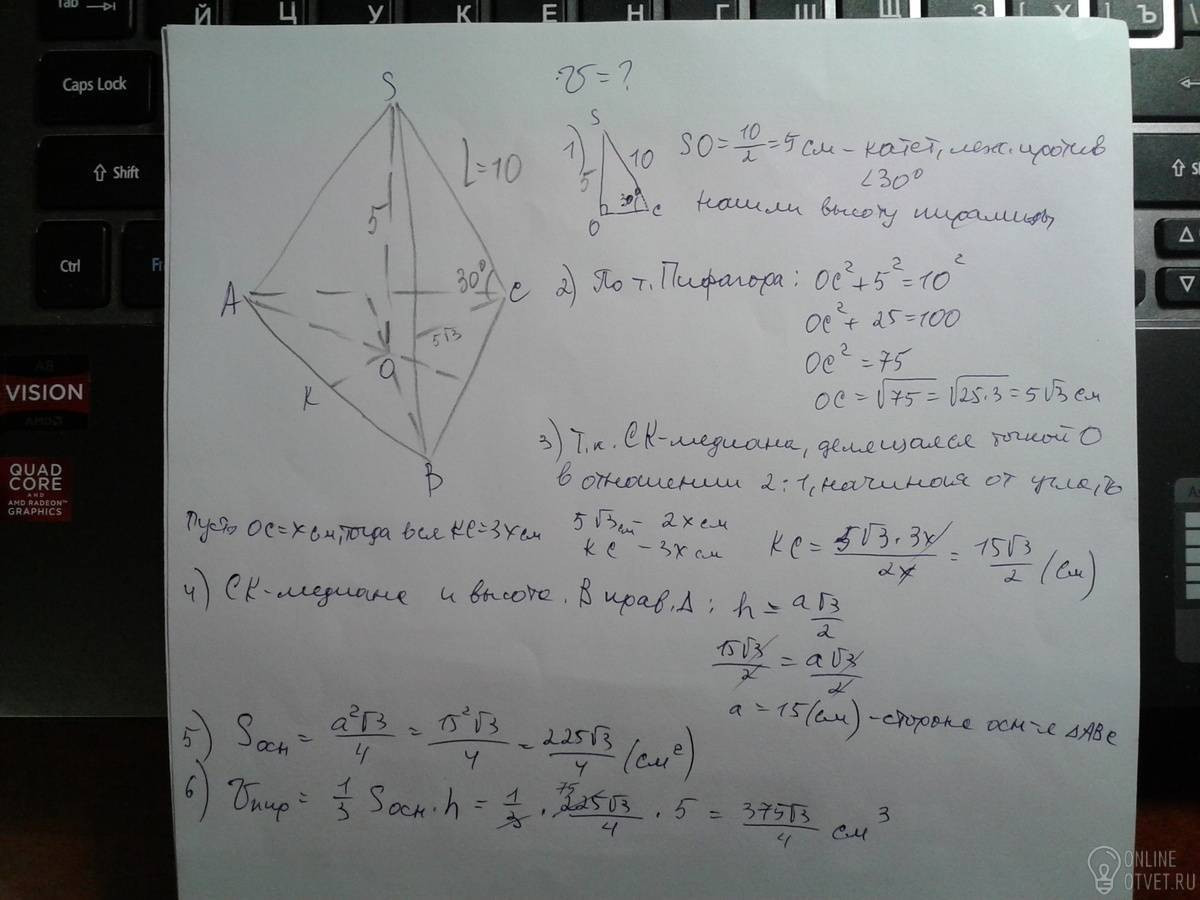 Tab
Й Ц У К Е Н Г Ш Щ З Х Ъ
Caps Lock
Shift
Ctrl
Fn
VISION
AMD
QUAD
CORE
AND
AMD RADEON™
GRAPHICS
S
L=10
5
A
30°
C
5√3
O
K
B
V=?
1)
S
5
10
30°
O
C
SO = 10/2 = 5 см – катет, леж. против
∠30°
Нашли высоту пирамиды
2) По т. Пифагора: OC² + 5² = 10²
OC² + 25 = 100
OC² = 75
OC = √75 = √25·3 = 5√3 см
3) Т.к. СК-медиана, делящаяся точкой О
в отношении 2:1, начиная от угла, то
Пусть OC = x см, тогда вся KC = 3x см
5√3 см – 2x см
KC – 3x см
KC = 5√3·3x/2x = 15√3/2 (см)
4) СК-медиана и высота. В прав. Δ: h = a√3/2
15√3/2 = a√3/2
a = 15 (см) – сторона осн-я ΔABC
5) Sосн = a²√3/4 = 15²√3/4 = 225√3/4 (см²)
6) Vпир = 1/3 Sосн·h = 1/3 · 75 225√3/4 · 5 = 375√3/4 см³
ONLINE
OTVET.RU